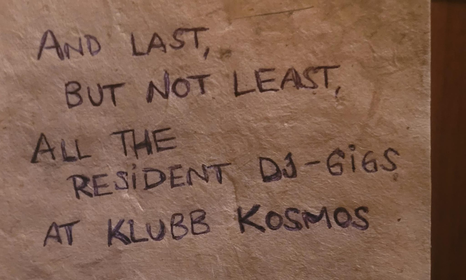 AND LAST,
BUT NOT LEAST,
ALL THE
RESiDENT DJ-GiGS
AT KLUBB KOSMOS